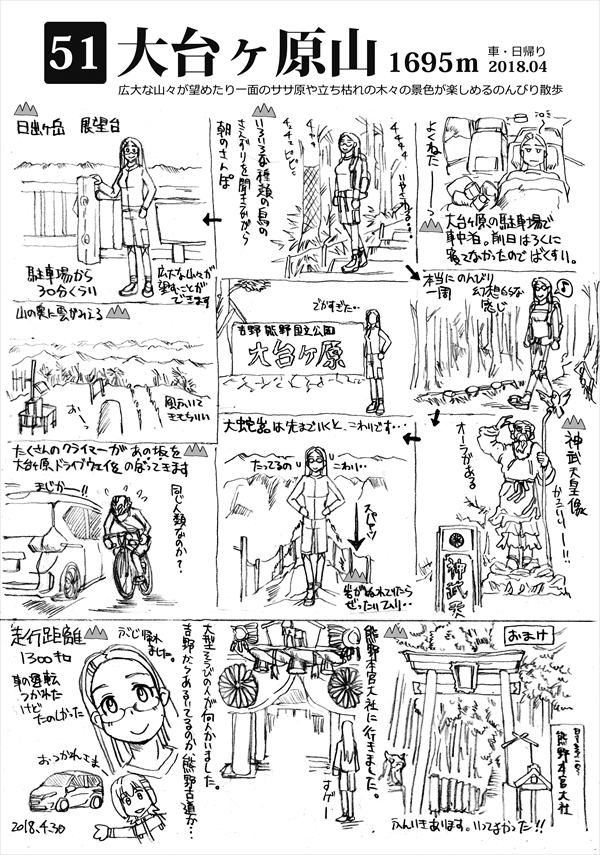 51
大台ヶ原山 1695m
車・日帰り
2018.04
広大な山々が望めたり一面のササ原や立ち枯れの木々の景色が楽しめるのんびり散歩
よくねたー
大台ヶ原の駐車場で
車中泊。前日はろくに
寝てなかったのでばくすい。
いろいろな種類の鳥の
さえずりを聞きながら
朝のさんぽ
いやされる…
日出ヶ岳 展望台
駐車場から
30分くらい
広大な山々が
望むことが
できます
本当にのんびり
一周 幻想的な
感じ
でかすぎた…
吉野熊野国立公園
大台ヶ原
山の奥に雲がみえる
おー
風ふいて
きもちいい
神武天皇像
かっこいいー!!
オーラがある
神武天
大蛇嵓は先まで行くと、こわいです…
たってるの
こわい…
スパッ
岩がぬれていたら
ぜったいムリ…
たくさんのクライマーがあの坂を
大台ヶ原ドライブウェイをのぼってきます
まじかー!!
同じ人類なのか?
おまけ
熊野本宮大社
ふんいきあります。いってよかった!!
熊野本宮大社に行きました。
すげー
大型ザックの人が何人かいました。
吉野からあるいてるのか熊野古道か…
走行距離
1300キロ
車の運転
つかれた
けど
たのしかった
ぶじ帰れ
ました。
おつかれさま
2018.4.30